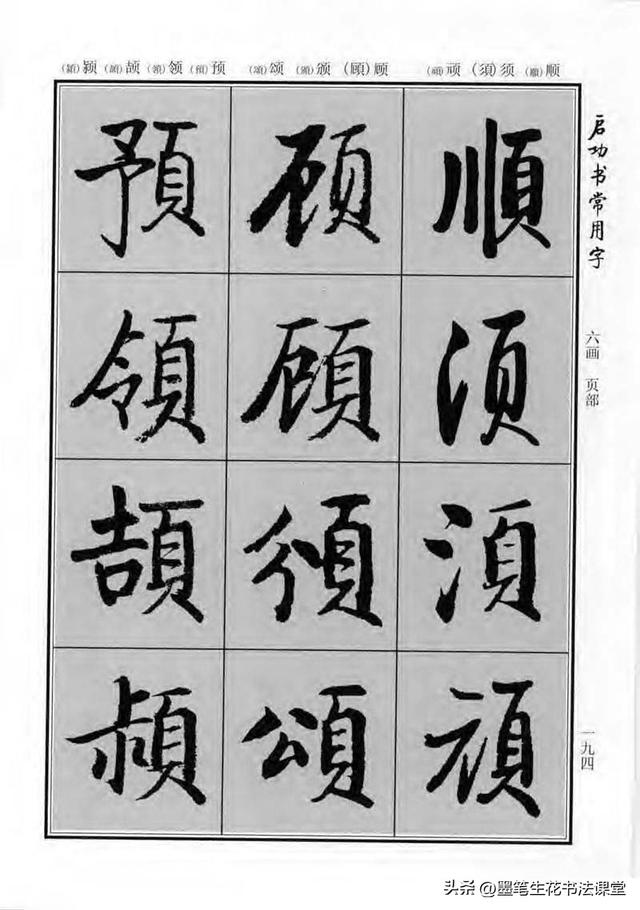 (穎)颖 (頡)颉 (領)领 (預)预 (頌)颂 (頒)颁 (顧)顾 (頑)顽 (須)须 (順)顺
启功书常用字
六画 页部
順须須頑
顾顾頒頌
預領頡
一九四
头条 @墨笔生花书法课堂